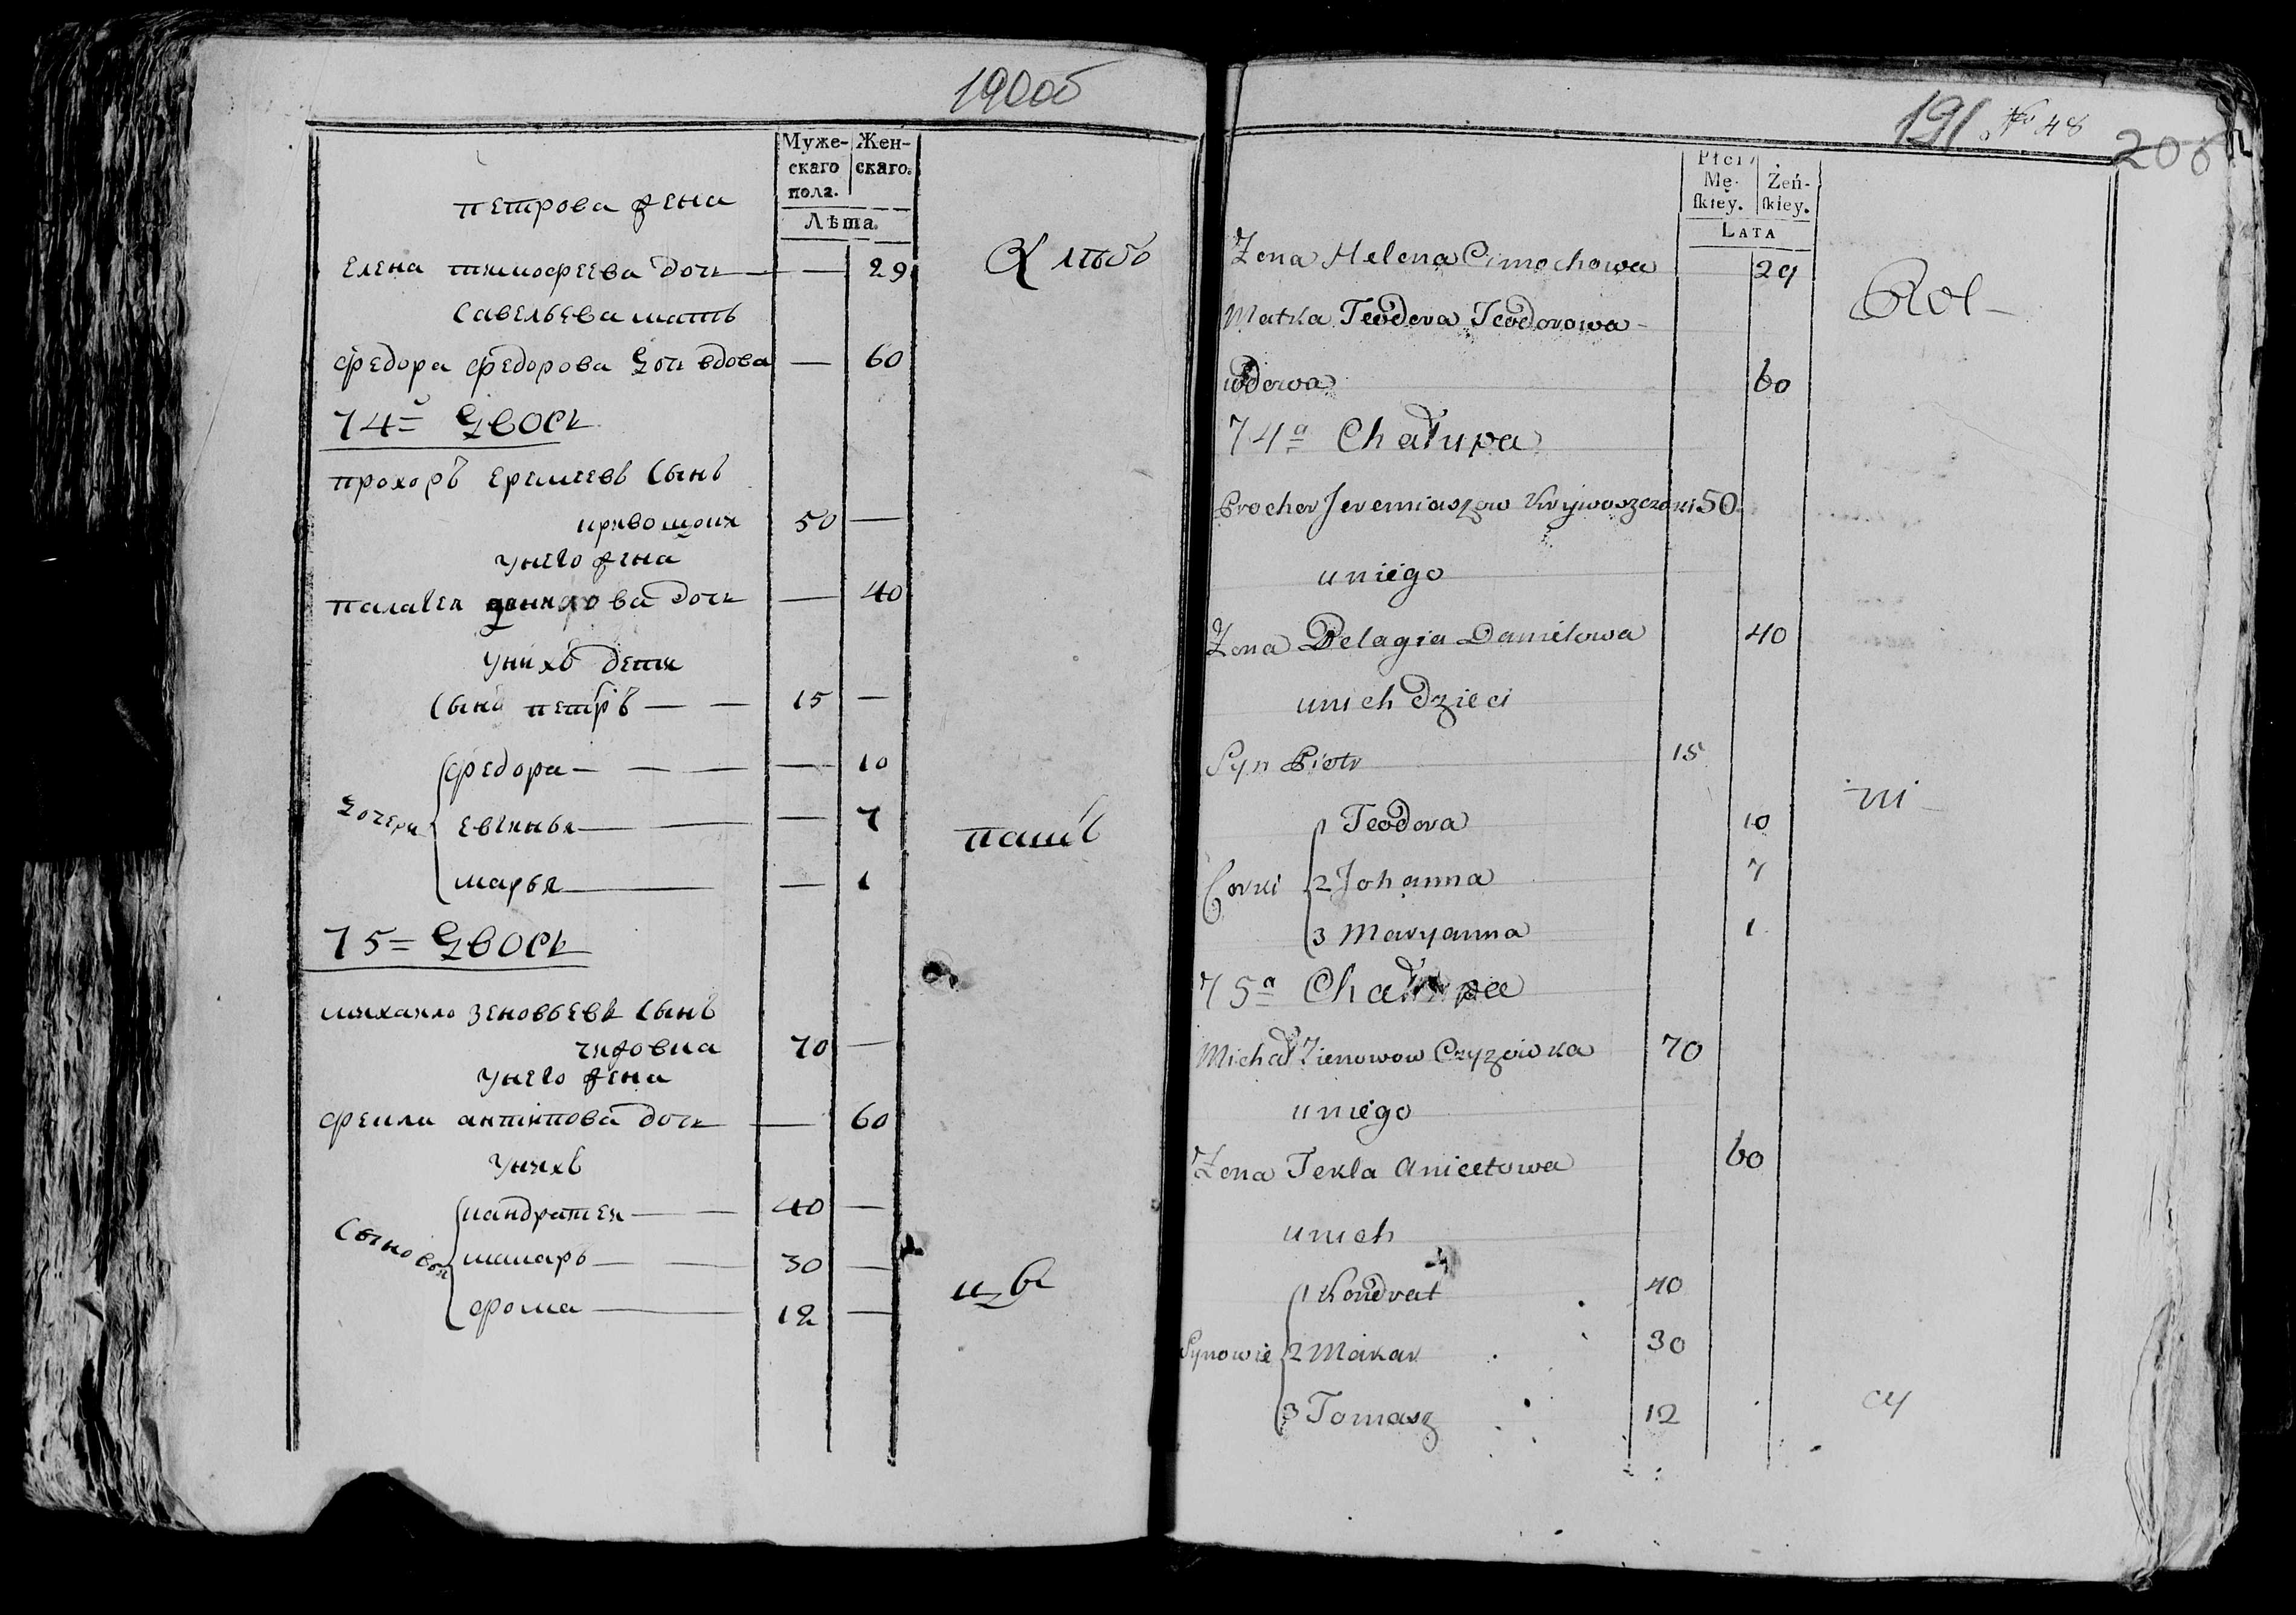 190об
Муже-
скаго
пола.
Жен-
скаго.
Лѣта.
петрова жена
елена тимофеева дочь — — 29
савельева мать
федора федорова дочь вдова — 60
74й Дворъ
прохоръ еремеевъ сынъ
кривошик 50 —
у него жена
палагея данилова дочь — 40
у нихъ дети
сынъ петръ — — 15 —
федора — — — — 10
дочери евгинья — — — 7
марья — — 1
75 Дворъ
михайло зеновьевъ сынъ
чижовка 70 —
у него жена
фекла антипова дочь — 60
у нихъ
кандратей — — 40 —
сыновья макаръ — — 30 —
фома — 12 —
хлѣбо
паш
191 No 48
206
Płci
Mę-
ſkiey.
Żeń-
ſkiey.
LATA
Żona Helena Cimochowa 29
Matka Teodora Teodorowa
wdowa 60
74a Chałupa
Prochor Jeremiaszow Krywoszczoki 50
u niego
Żona Pelagia Daniłowa 40
u nich dzieci
Syn Piotr 15
1 Teodora 10
Corki 2 Johanna 7
3 Maryanna 1
75a Chałupa
Michał Zienowow Czyzowka 70
u niego
Żona Tekla Anicetowa 60
u nich
1 Kondrat 40
Synowie 2 Makar 30
3 Tomasz 12
Rol-
ni-
cy